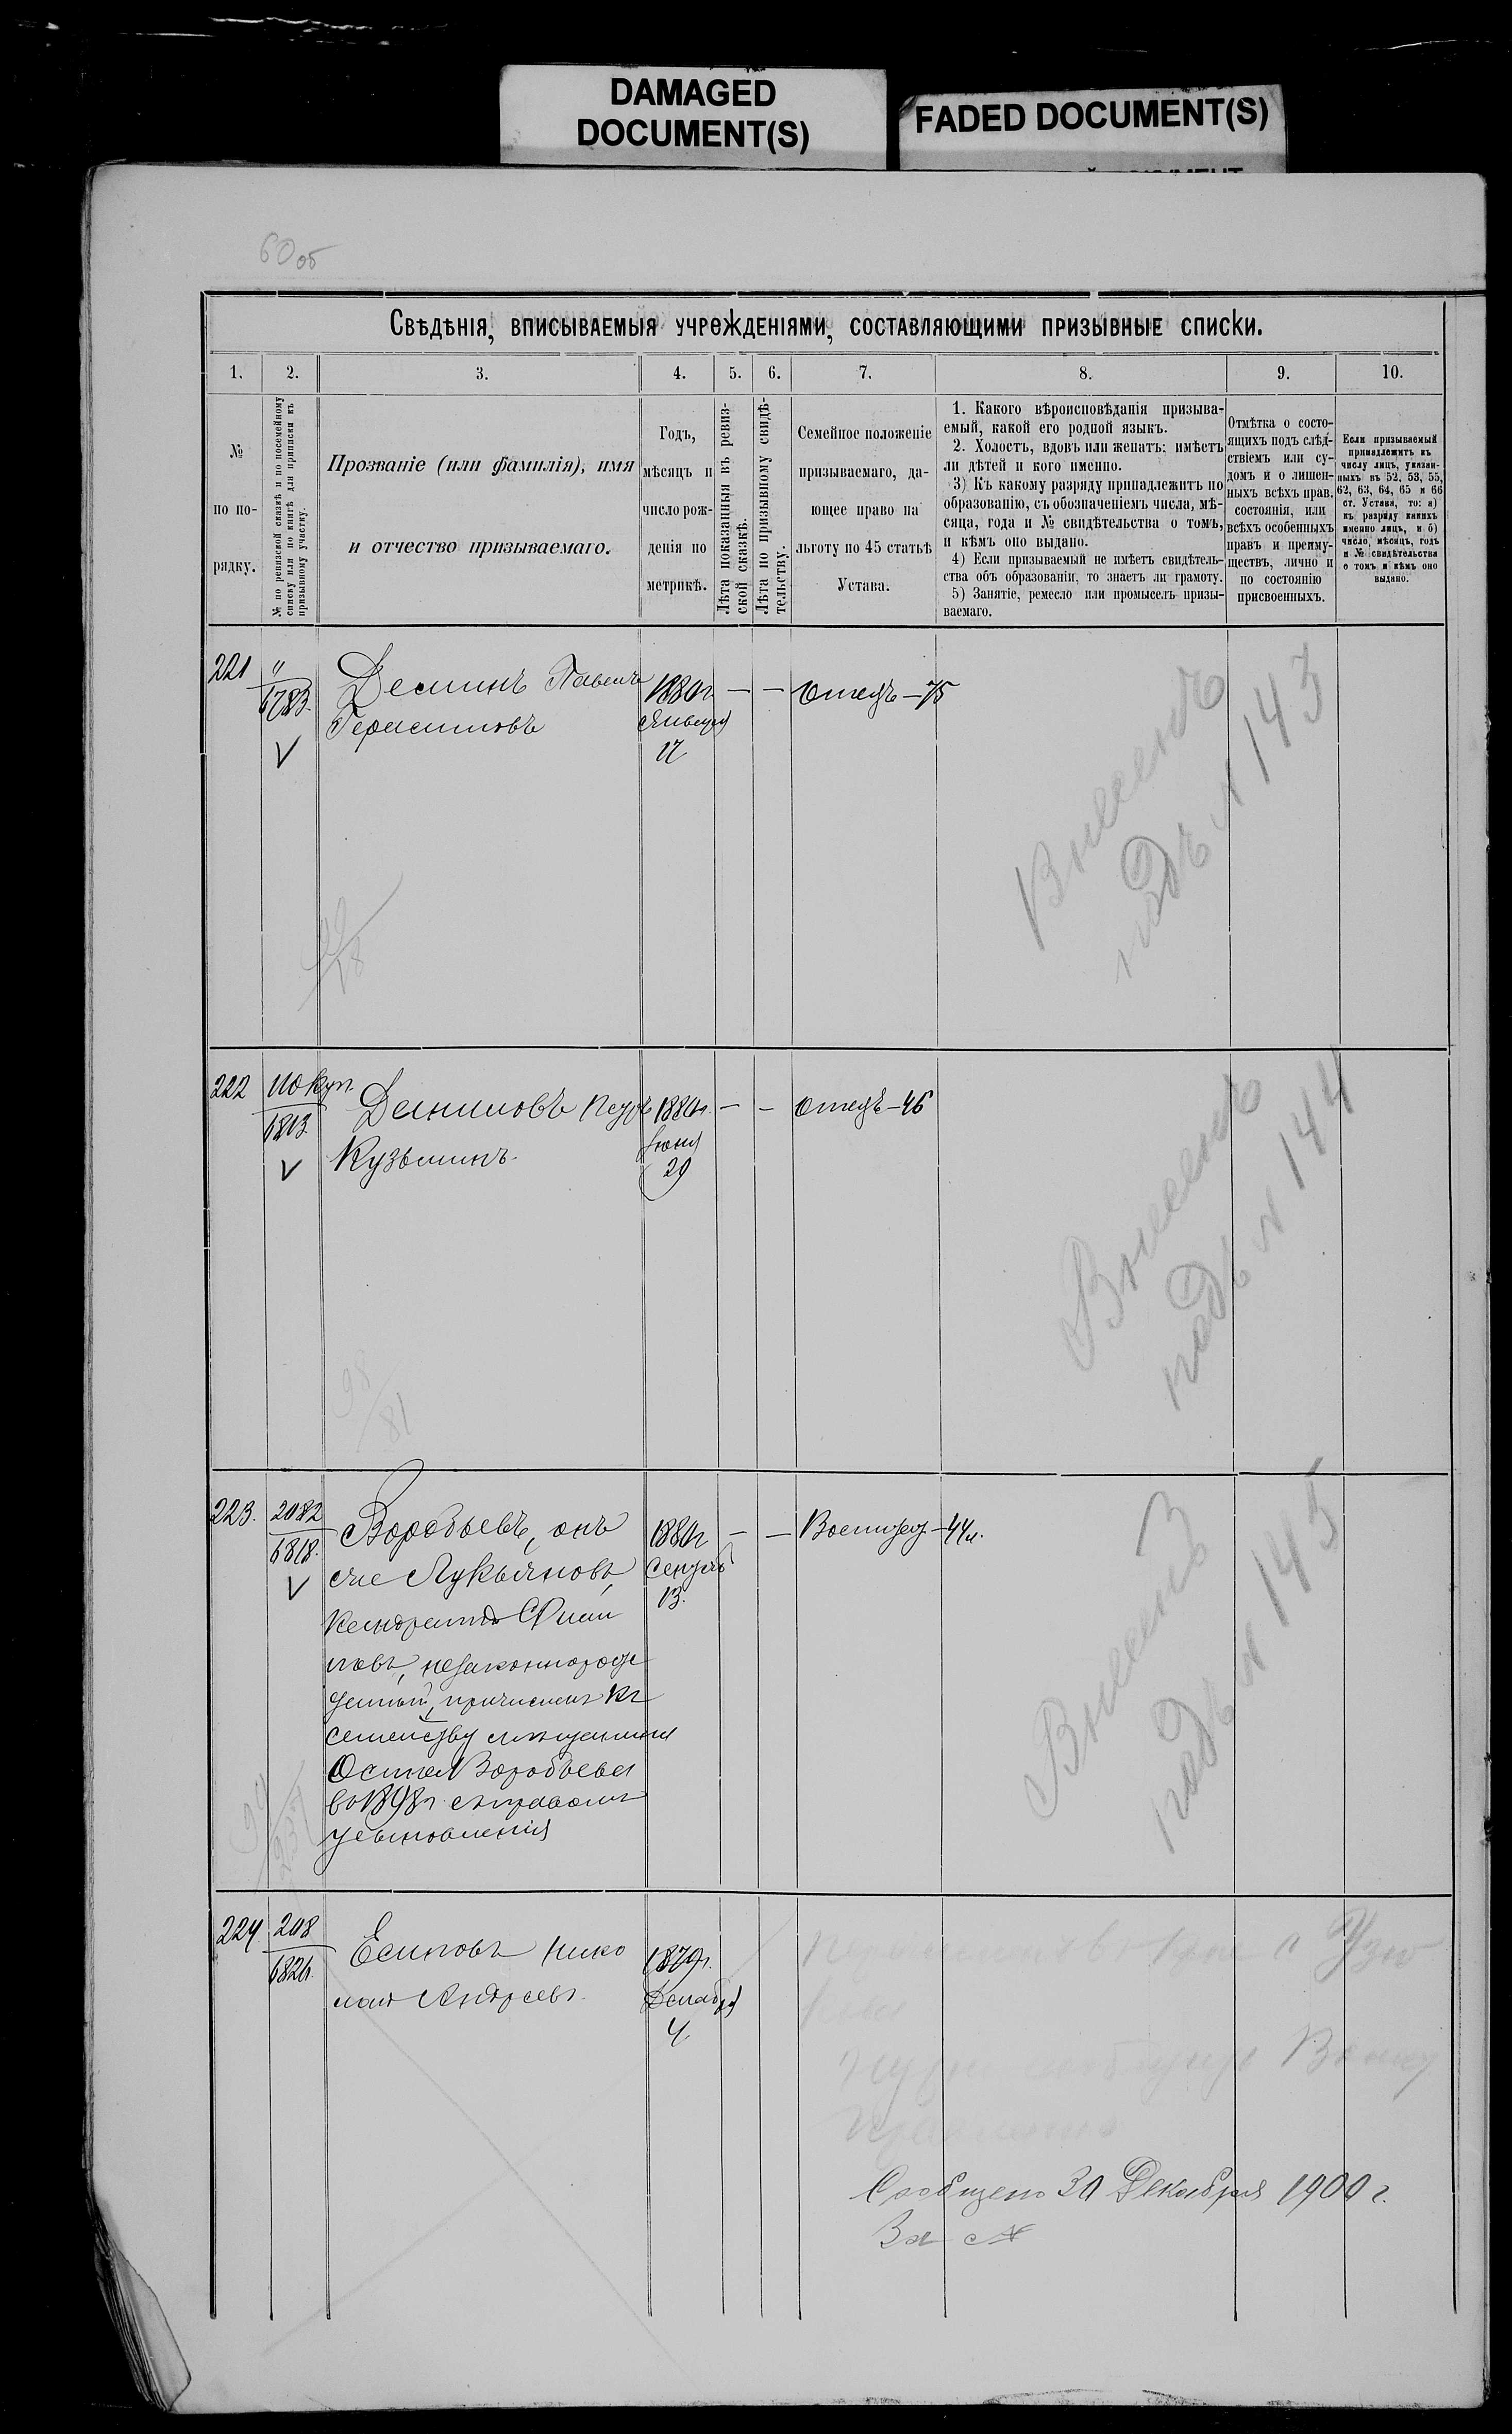 DAMAGED
DOCUMENT(S)
FADED DOCUMENT(S)
60об
Свѣдѣнія, вписываемыя учрежденіями, составляющими призывные списки.
1. 2. 3. 4. 5. 6. 7. 8. 9. 10.
№
по по-
рядку.
№ по ревизской сказкѣ и по посемейному
списку или по книгѣ для приписки къ
призывному участку.
Прозваніе (или фамилія), имя
и отчество призываемаго.
Годъ,
мѣсяцъ и
число рож-
денія по
метрикѣ.
Лѣта показанныя въ ревиз-
ской сказкѣ.
Лѣта по призывному свидѣ-
тельству.
Семейное положеніе
призываемаго, да-
ющее право на
льготу по 45 статьѣ
Устава.
1. Какого вѣроисповѣданія призыва-
емый, какой его родной языкъ.
2. Холостъ, вдовъ или женатъ: имѣетъ
ли дѣтей и кого именно.
3) Къ какому разряду принадлежитъ по
образованію, съ обозначеніемъ числа, мѣ-
сяца, года и № свидѣтельства о томъ,
и кѣмъ оно выдано.
4) Если призываемый не имѣетъ свидѣтель-
ства объ образованіи, то знаетъ ли грамоту.
5) Занятіе, ремесло или промыселъ призы-
ваемаго.
Отмѣтка о состо-
ящихъ подъ слѣд-
ствіемъ или су-
домъ и о лишен-
ныхъ всѣхъ прав.
состоянія, или
всѣхъ особенныхъ
правъ и преиму-
ществъ, лично и
по состоянію
присвоенныхъ.
Если призываемый
принадлежитъ къ
числу лицъ, указан-
ныхъ въ 52, 53, 55,
62, 63, 64, 65 и 66
ст. Устава, то: а)
къ разряду какихъ
именно лицъ, и б)
число, мѣсяцъ, годъ
и № свидѣтельства
о томъ и кѣмъ оно
выдано.
221 " Деминъ Павелъ 1880г. — — Отецъ — 75
6783. Герасимовъ Января
17
Внесенъ
подъ № 143
222 Дениловъ Петръ 1880г. — — Отецъ — 46
6813. Кузьминъ. Іюня
29
Внесенъ
подъ № 144
98
81
223. 2082 Воробьевъ, онъ 1880г — — 44л.
6818. же Лукьяновъ Сентяб
13.
незаконнорож
денный, причисленъ къ
семейству мѣщанина
Осипа Воробьева
въ 1898г. съ правомъ
усыновленія
Внесенъ
подъ № 145
224 208 Есиповъ Нико 1879г.
6826. лай Андреевъ. Декабря
4
Сообщено 30 Декабря 1900 г.
За №